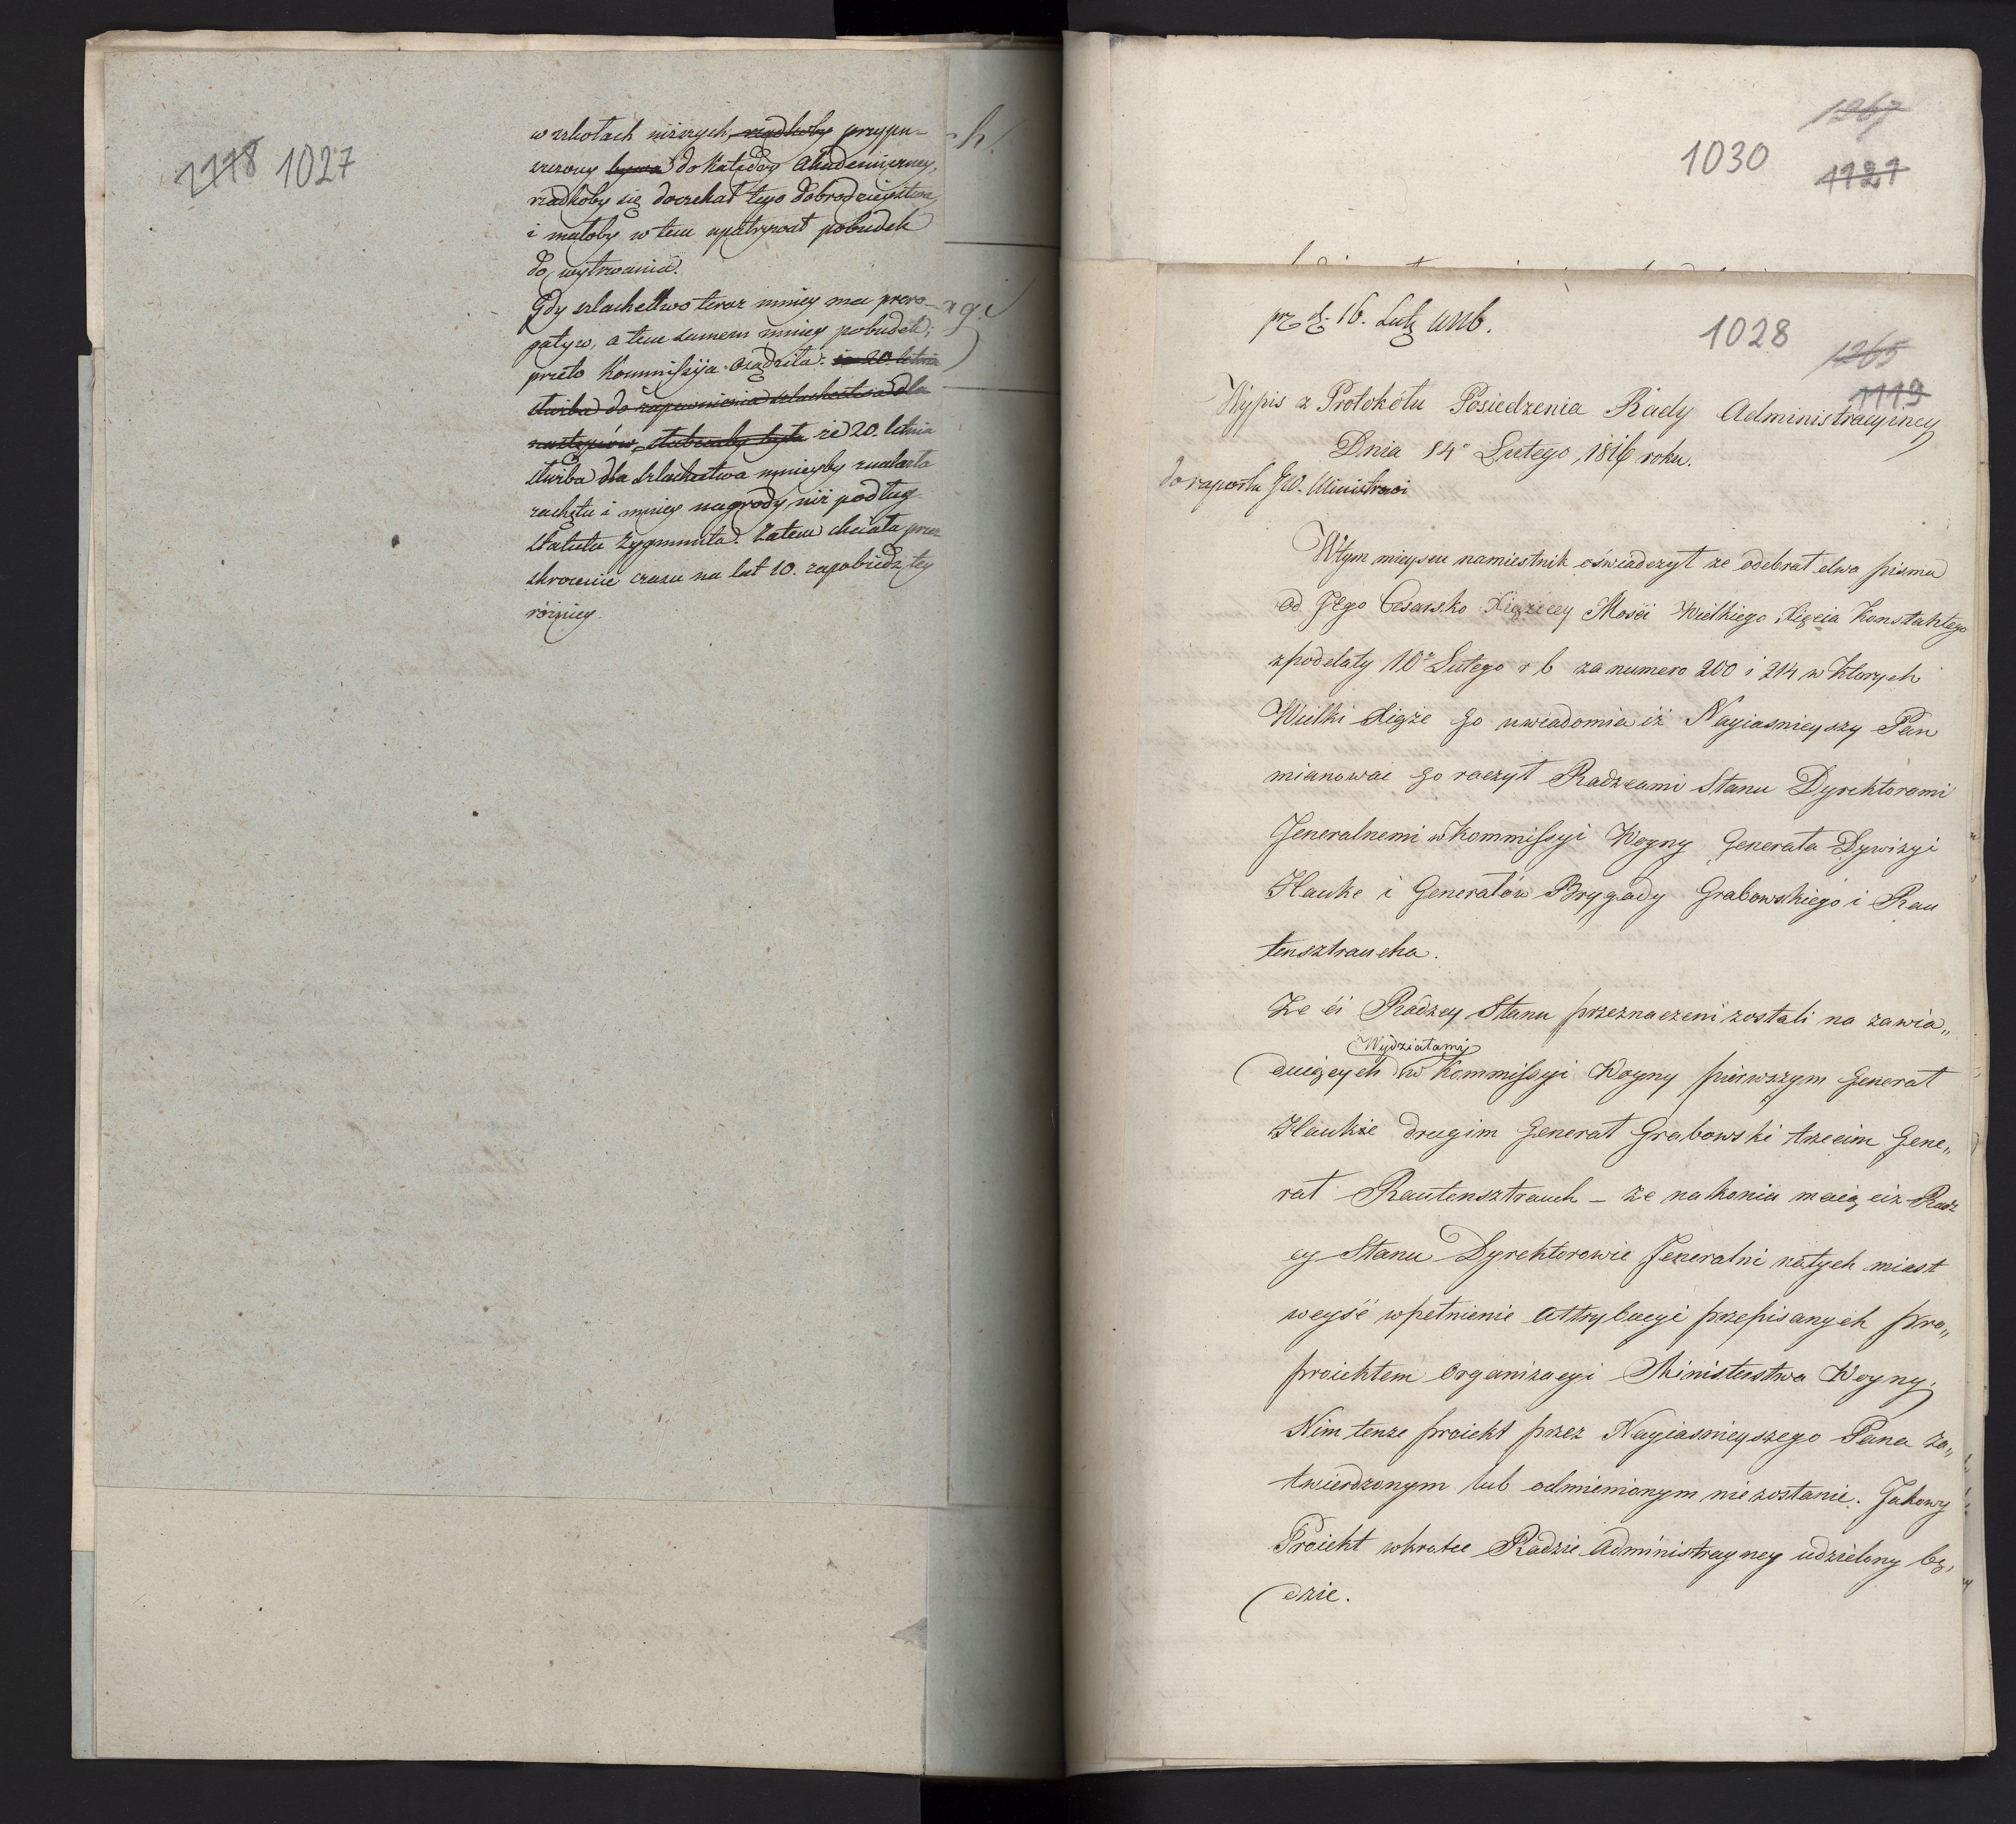 1118 1027
w szkołach niższych, rzadkoby przypu-
szczony bywa do Katedry Akademiczney,
rzadkoby się doczekał tego dobrodzieystwa,
i małoby w tem upatrywał pobudek
do wytrwania.
Gdy szlachectwo teraz mniey ma prero-
gatyw, a tem samem mniey pobudek;
przeto Kommissyja osądziła: iż 20. letnia
służba do zapewnienia szlachectwa dla
następców, słabszaby była że 20. letnia
służba dla szlachectwa mnieyby znalazła
zachętu i mniey nagrody niż podług
statutu Zygmunta. Zatem chciała przez
skrócenie czasu na lat 10. zapobiedz tey
różnicy
1267
1030
1121
pr d. 16. Lut
1028
1265
1119
Wypis z Protokołu Posiedzenia Rady Administracyiney
Dnia 14o Lutego, 1816 roku.
do raportu JW. Ministrowi
W tym mieyscu namiestnik oświadczył ze odebrał dwa pisma
od JEgo Cesarsko Xiążęcey Mości Wielkiego Xięcia Konstantego
zpod daty 10o Lutego r b za numero 200 i 214 w ktorych
Wielki Xiąże go uwiadomia iż Nayiasnieyszy Pan
mianowac go raczył Radzcami Stanu Dyrektorami
Jeneralnemi w Kommissyi Woyny Generała Dywizyi
Hauke i Generałów Brygady Grabowskiego i Rau
tensztraucha.
Ze ći Radzcy Stanu przeznaczeni zostali na zawia„
Wydziałami
duiących w Kommissyi Woyny pierwszym Generał
Haukie drugim Generał Grabowski trzecim Gene„
rał Rautensztrauch – ze nakoniu maią ciz Radz
cy Stanu Dyrektorowie Jeneralni natych miast
weyść w pełnienie attrybucyi przepisanych pro„
proiektem Organizacyi Ministerstwa Woyny,
Nim tenze proiekt przez Nayiasnieyszego Pana za„
twierdzonym lub odmienionym nie zostanie. Jakowy
Proiekt wkrotce Radzie Administracyney udzielony bę„
dzie.